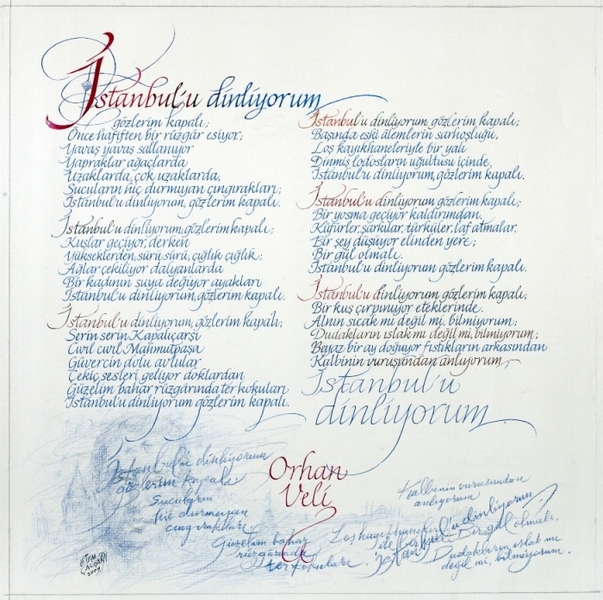 İstanbul'u dinliyorum
gözlerim kapalı;
Önce hafiften bir rüzgâr esiyor;
Yavaş yavaş sallanıyor
Yapraklar ağaçlarda
Uzaklarda, çok uzaklarda,
Sucuların hiç durmayan çıngırakları;
İstanbul'u dinliyorum, gözlerim kapalı.
İstanbul'u dinliyorum, gözlerim kapalı;
Kuşlar geçiyor, derken
Yükseklerden, sürü sürü, çığlık çığlık;
Ağlar çekiliyor dalyanlarda
Bir kadının suya değiyor ayakları
İstanbul'u dinliyorum, gözlerim kapalı.
İstanbul'u dinliyorum, gözlerim kapalı;
Serin serin Kapalıçarşı
Cıvıl cıvıl Mahmutpaşa
Güvercin dolu avlular
Çekiç sesleri geliyor doklardan
Güzelim bahar rüzgârında ter kokuları
İstanbul'u dinliyorum gözlerim kapalı.
İstanbul'u dinliyorum, gözlerim kapalı;
Başında eski âlemlerin sarhoşluğu,
Loş kayıkhaneleriyle bir yalı
Dinmiş lodosların uğultusu içinde,
İstanbul'u dinliyorum, gözlerim kapalı.
İstanbul'u dinliyorum, gözlerim kapalı;
Bir yosma geçiyor kaldırımdan.
Küfürler, şarkılar, türküler, laf atmalar.
Bir şey düşüyor elinden yere;
Bir gül olmalı.
İstanbul'u dinliyorum, gözlerim kapalı.
İstanbul'u dinliyorum, gözlerim kapalı;
Bir kuş çırpınıyor eteklerinde.
Alnın sıcak mı değil mi, bilmiyorum;
Dudakların ıslak mı değil mi, bilmiyorum;
Beyaz bir ay doğuyor fıstıkların arkasından
Kalbinin vuruşundan anlıyorum,
İstanbul'u
dinliyorum.
Orhan
Veli
İstanbul'u dinliyorum
gözlerim kapalı
Sucuların
hiç durmayan
çıngırakları
Güzelim bahar
rüzgârında
ter kokuları
Kalbinin vuruşundan
anlıyorum
dinliyorum
Bir gül olmalı.
Dudakların ıslak mı
değil mi, bilmiyorum.
2009